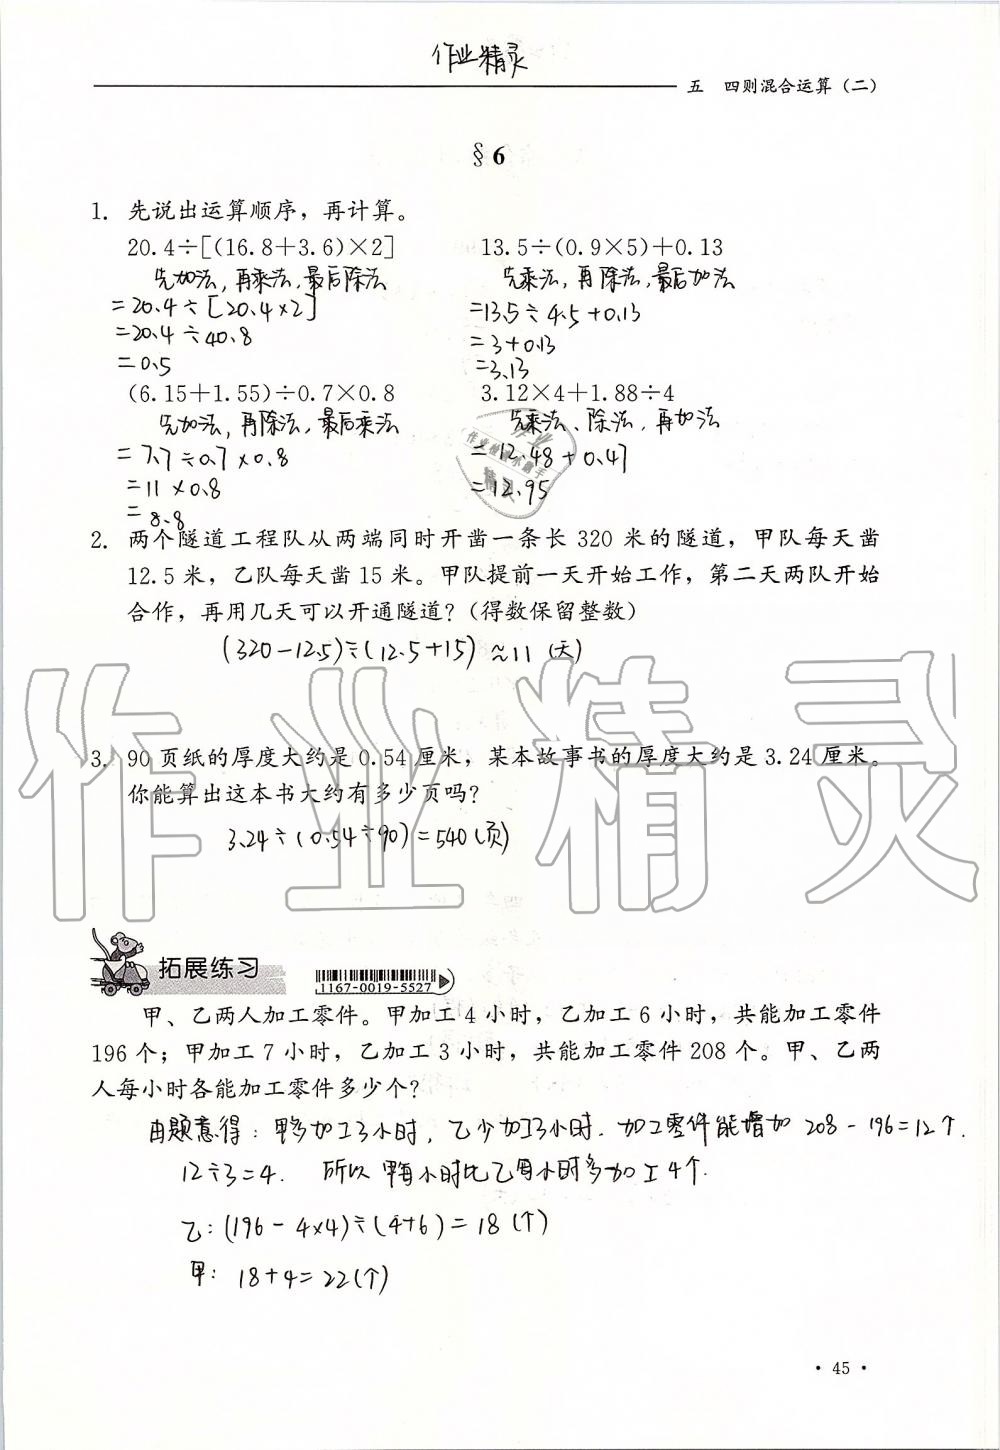 作业精灵
五 四则混合运算(二)
§6
1. 先说出运算顺序，再计算。
20.4÷[(16.8+3.6)×2] 13.5÷(0.9×5)+0.13
先加法,再乘法,最后除法 先乘法,再除法,最后加法
=20.4÷[20.4×2] =13.5÷4.5+0.13
=20.4÷40.8 =3+0.13
=0.5 =3.13
(6.15+1.55)÷0.7×0.8 3.12×4+1.88÷4
先加法,再除法,最后乘法 先乘法、除法,再加法
=7.7÷0.7×0.8 =12.48+0.47
=11×0.8 =12.95
=8.8
2. 两个隧道工程队从两端同时开凿一条长 320 米的隧道，甲队每天凿
12.5 米，乙队每天凿 15 米。甲队提前一天开始工作，第二天两队开始
合作，再用几天可以开通隧道？(得数保留整数)
(320-12.5)÷(12.5+15)≈11(天)
3. 90 页纸的厚度大约是 0.54 厘米，某本故事书的厚度大约是 3.24 厘米。
你能算出这本书大约有多少页吗？
3.24÷(0.54÷90)=540(页)
作业精灵
拓展练习
1167-0019-5527
甲、乙两人加工零件。甲加工 4 小时，乙加工 6 小时，共能加工零件
196 个；甲加工 7 小时，乙加工 3 小时，共能加工零件 208 个。甲、乙两
人每小时各能加工零件多少个？
由题意得：甲多加工3小时,乙少加工3小时.加工零件能增加 208-196=12个.
12÷3=4. 所以甲每小时比乙每小时多加工4个.
乙:(196-4×4)÷(4+6)=18(个)
甲: 18+4=22(个)
·45·